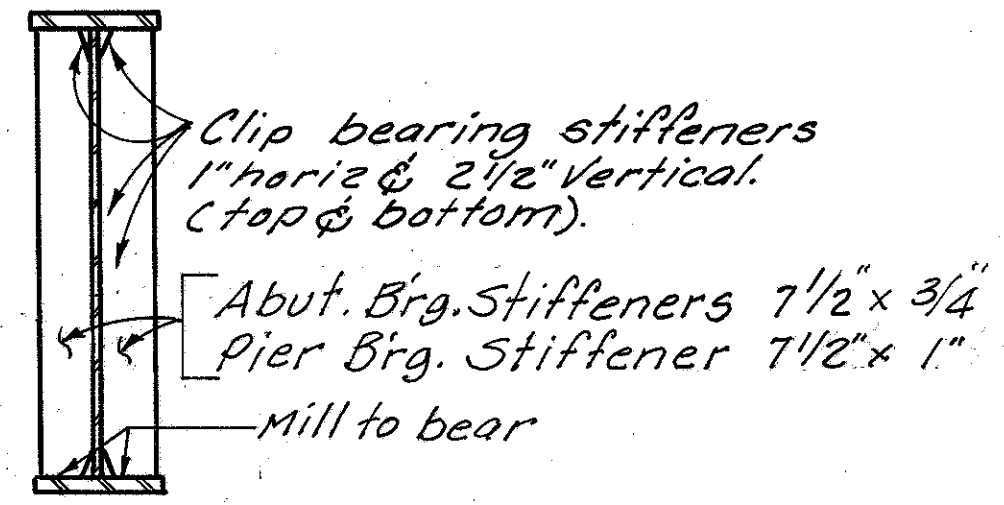 Clip bearing stiffeners
1" horiz & 2 1/2" Vertical.
(top & bottom).
Abut. Br'g. Stiffeners 7 1/2" x 3/4"
Pier Br'g. Stiffener 7 1/2" x 1"
Mill to bear